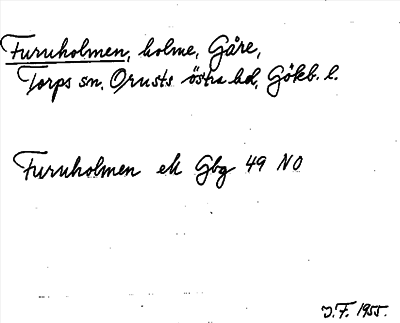 Furuholmen, holme, Gåre,
Torps sn, Orusts östra hd, Gökb. l.
Furuholmen ek Gbg 49 NO
J.F. 1955.